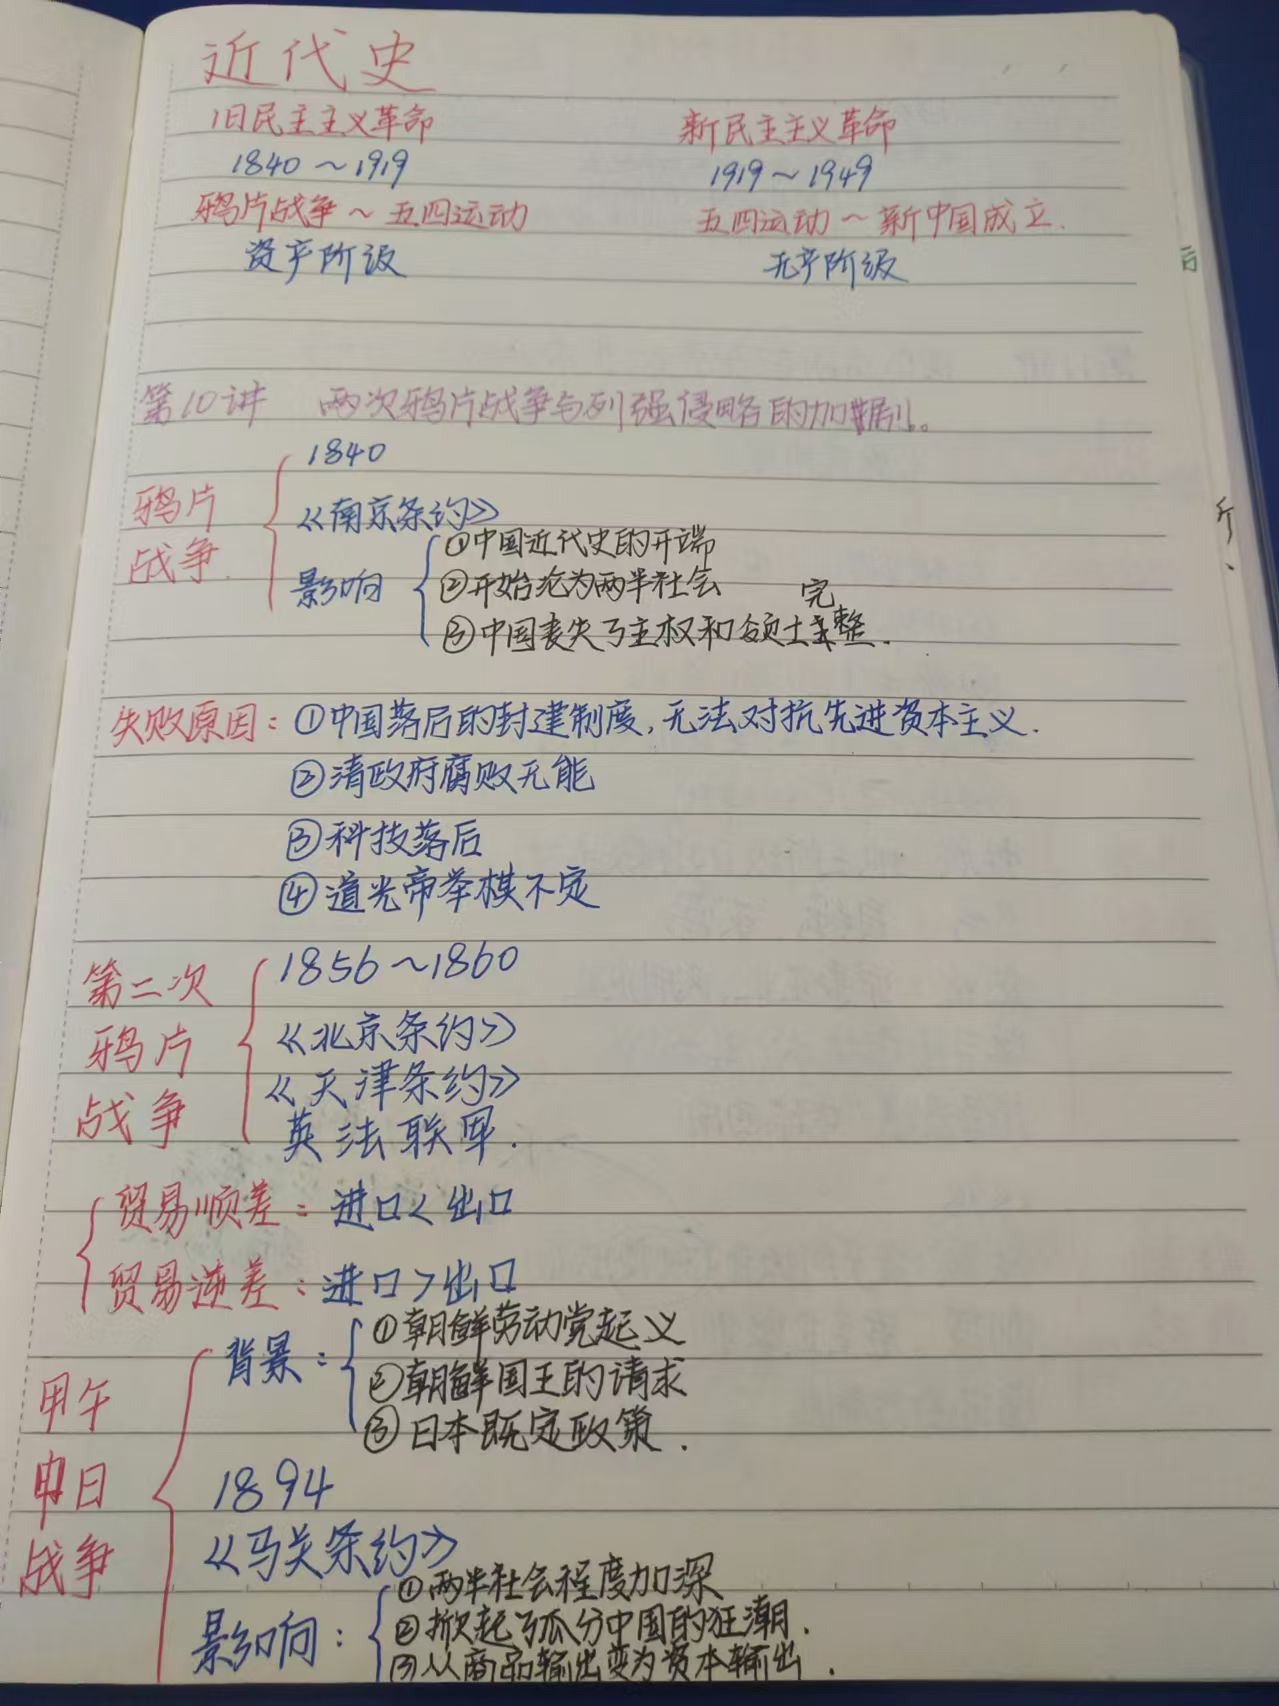 近代史
旧民主主义革命 新民主主义革命
1840～1919 1919～1949
鸦片战争～五四运动 五四运动～新中国成立.
资产阶级 无产阶级
第10讲 两次鸦片战争与列强侵略的加剧。
鸦片战争
1840
《南京条约》
影响
①中国近代史的开端
②开始沦为两半社会
③中国丧失了主权和领土完整.
失败原因：①中国落后的封建制度,无法对抗先进资本主义.
②清政府腐败无能
③科技落后
④道光帝举棋不定
第二次鸦片战争
1856～1860
《北京条约》
《天津条约》
英法联军.
贸易顺差：进口<出口
贸易逆差：进口>出口
甲午中日战争
背景：
①朝鲜劳动党起义
②朝鲜国王的请求
③日本既定政策.
1894
《马关条约》
影响：
①两半社会程度加深
②掀起了瓜分中国的狂潮.
③从商品输出变为资本输出.